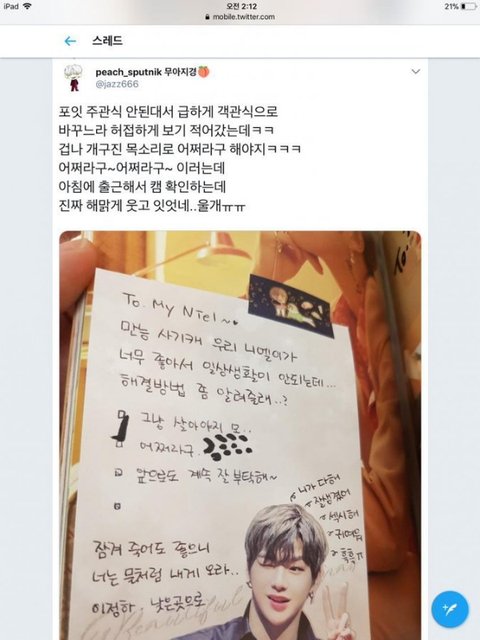 iPad
오전 2:12
21%
mobile.twitter.com
스레드
peach_sputnik 무아지경🍑
@jazz666
포잇 주관식 안된대서 급하게 객관식으로
바꾸느라 허접하게 보기 적어갔는데ㅋㅋ
겁나 개구진 목소리로 어쩌라구 해야지ㅋㅋㅋ
어쩌라구~어쩌라구~ 이러는데
아침에 출근해서 캠 확인하는데
진짜 해맑게 웃고 잇엇네..울개ㅠㅠ
To. My NTel~
만능 사기캐 우리 니엘이가
너무 좋아서 일상생활이 안되는데...
해결방법 좀 알려줄래..?
그냥 살아야지 모..
어쩌라구
앞으로도 계속 잘 부탁해~
니가 다해
잘생겼어
섹시해
귀여워
흑흑ㅠ
잠겨 죽어도 좋으니
너는 물처럼 내게 오라..
이정하. 낮은곳으로
Beautiful